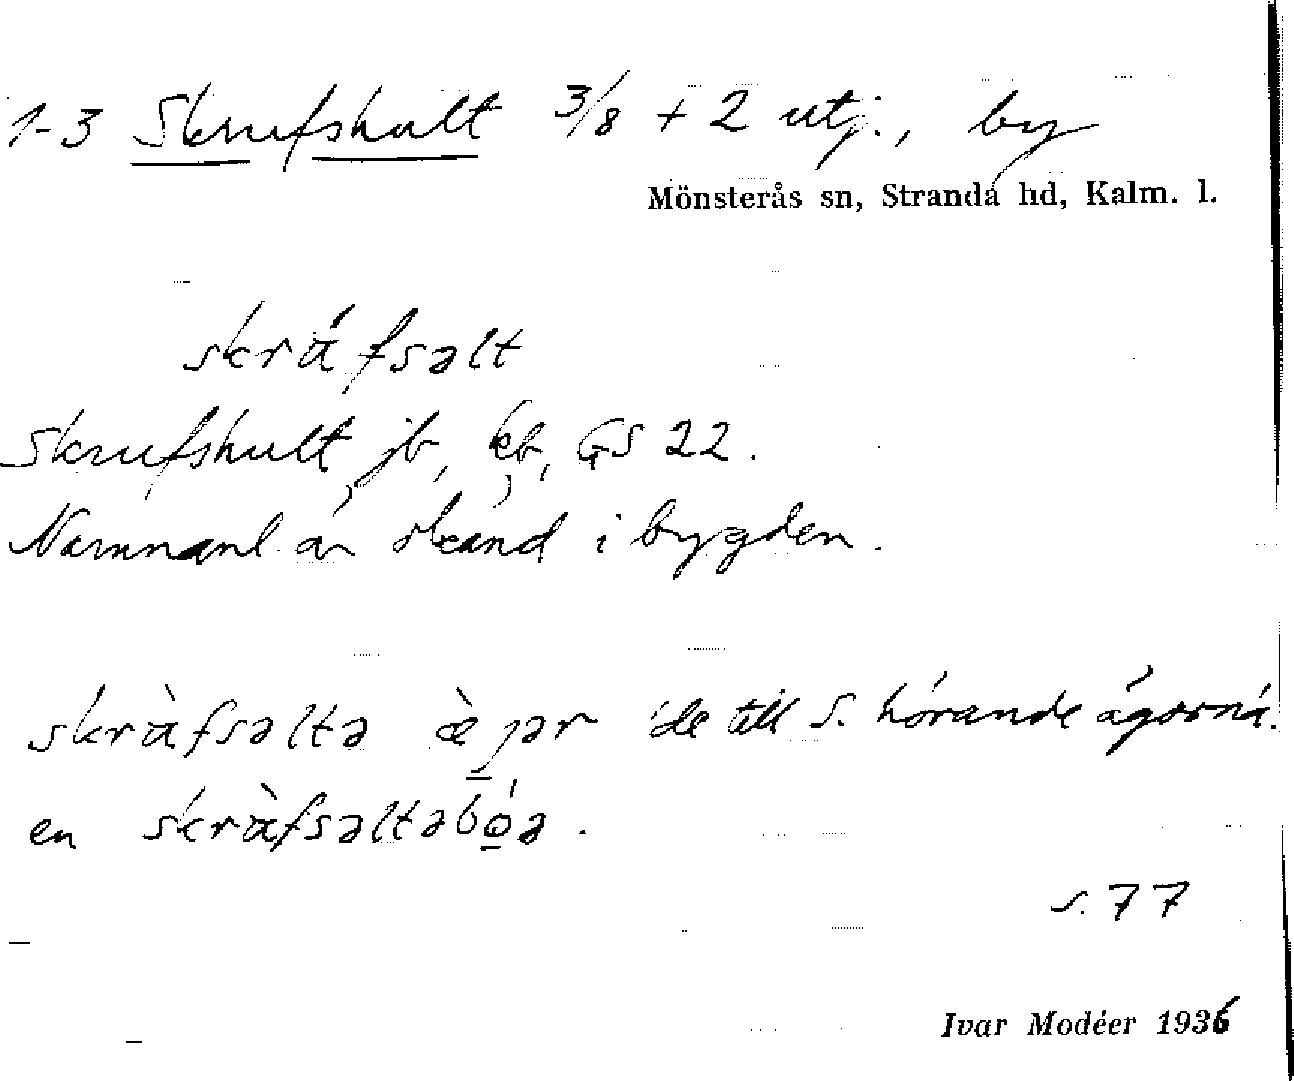 1-3 Skrufshult 3/8 + 2 utj., by
Mönsterås sn, Stranda hd, Kalm. l.
skrá̈fsəlt
Skrufshult jb, kb, GS 22.
Namnanl. är okänd i bygden.
skrà̈fsəlta æ̀jər 'de till S. hörande ägorna'.
en skrà̈fsəltəbóa.
s. 77
Ivar Modéer 1936